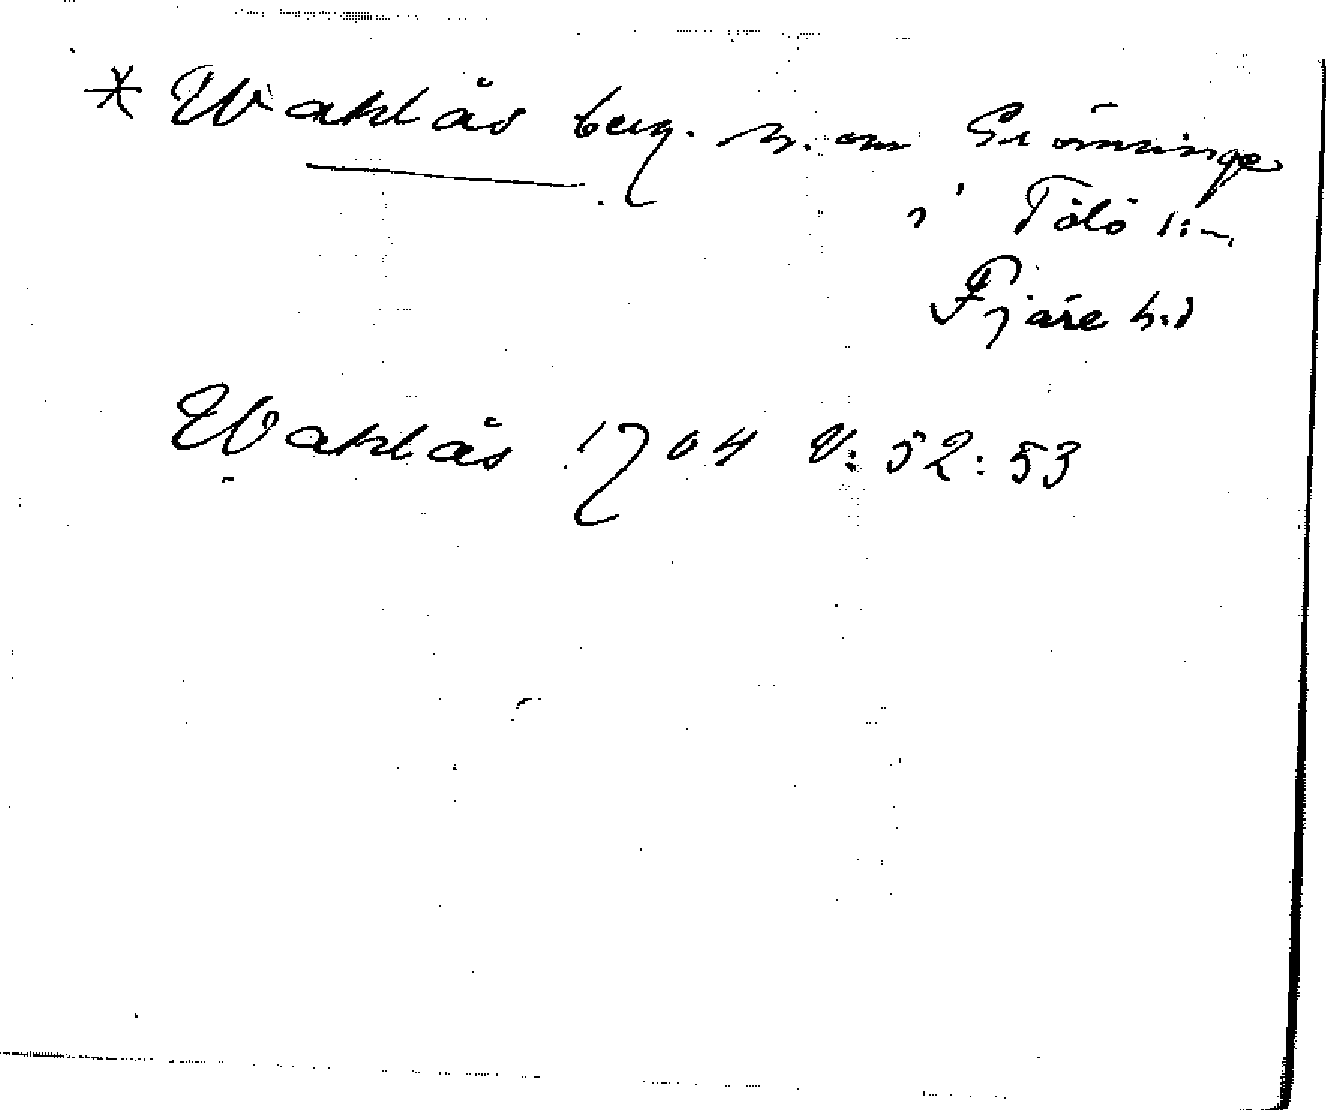 * Waklås berg. n. om Grönninge
i Tölö s:n
Fjäre h:d
Waklås 1704 V: 52: 53